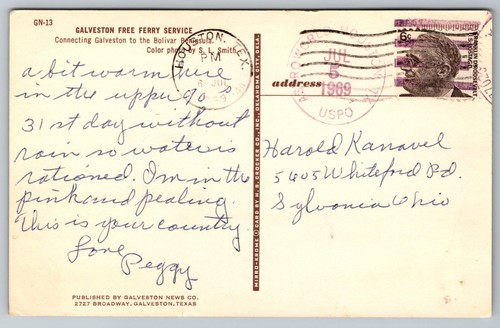 GN-13
GALVESTON FREE FERRY SERVICE
Connecting Galveston to the Bolivar Peninsula.
Color photo by S. L. Smith
a bit warm here
in the upper 90's
31st day without
rain so water is
rationed. I'm in the
pink and pealing.
This is your country.
Love
Peggy
PUBLISHED BY GALVESTON NEWS CO.
2727 BROADWAY, GALVESTON, TEXAS
HOUSTON, TEX.
PM
JUL
5
1969
USPO
6c
address
Harold Kanavel
5605 Whiteford Rd.
Sylvania Ohio